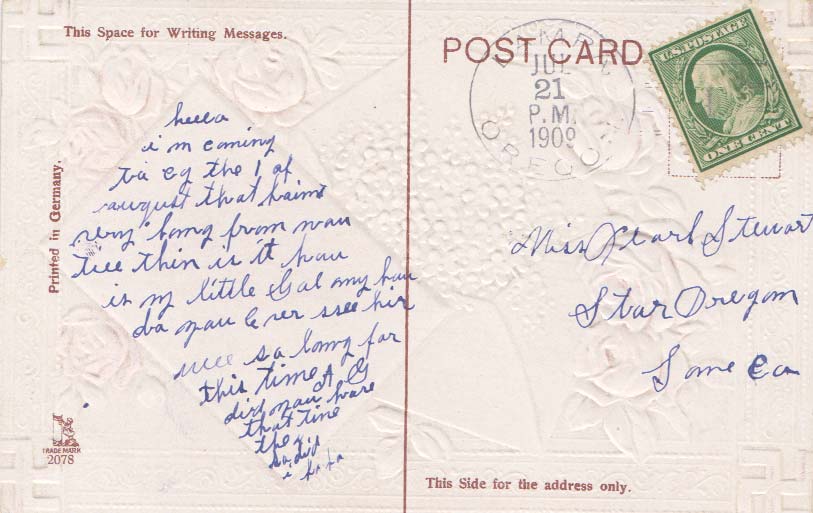 This Space for Writing Messages.
POST CARD
JUL
21
P.M.
1909
OREGON
U.S. POSTAGE
ONE CENT
Printed in Germany.
hello
i m coming
to cg the 1 of
august that haint
very long from nau
till thin is it hau
is my little Gal any hau
do you ever ssee hir
well so long for
this time A G
did you have
that time
they
so did
i ha ha
Miss Pearl Stewart
Star Oregon
Lane Co
TRADE MARK
2078
This Side for the address only.